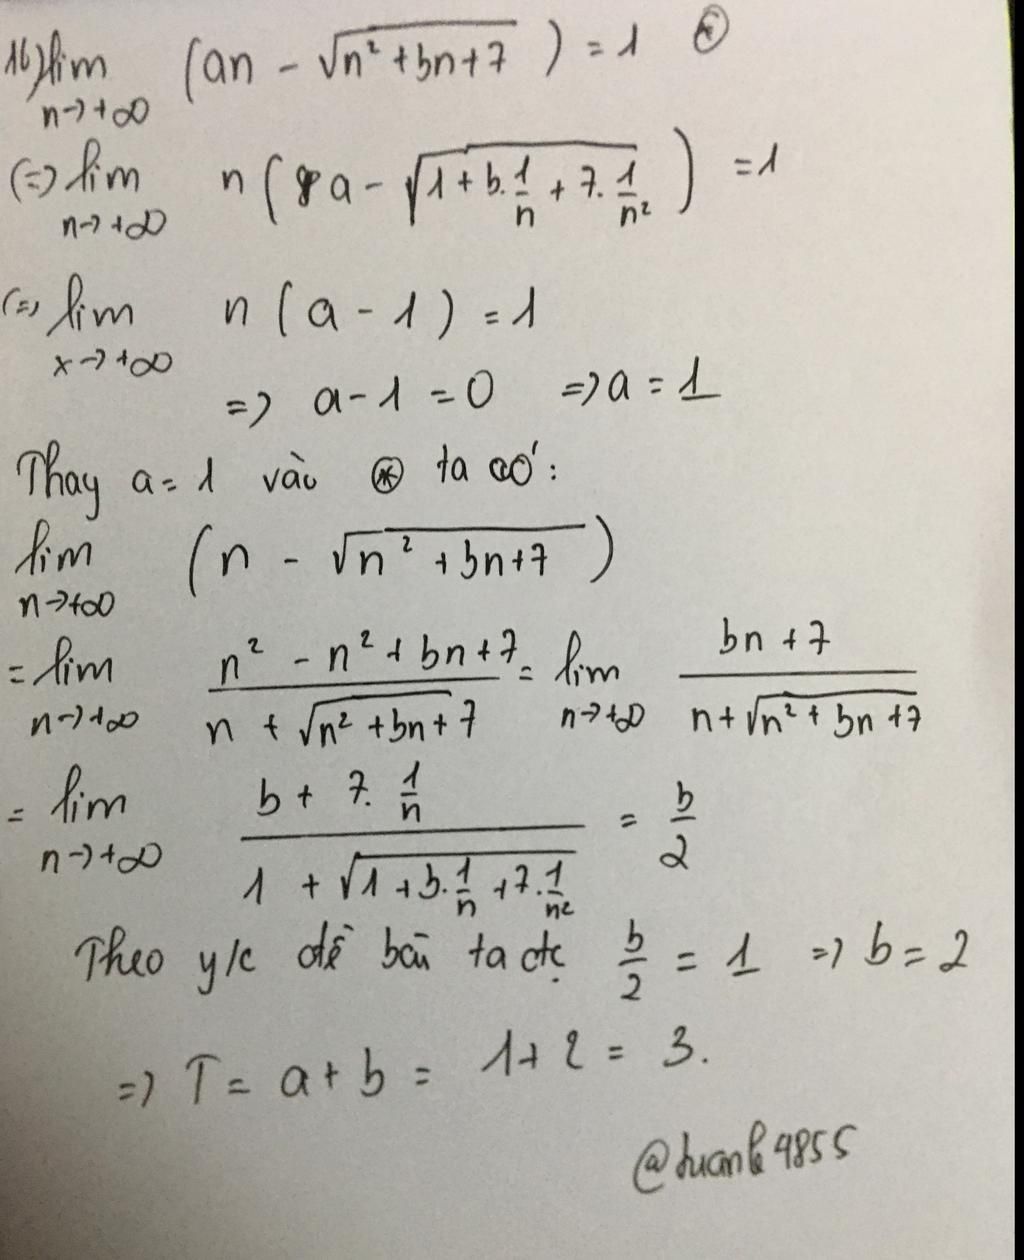 16) lim n→+∞ (an - √(n² + bn + 7)) = 1 (*)
(=) lim n→+∞ n(a - √(1 + b.1/n + 7.1/n²)) = 1
(=) lim x→+∞ n(a - 1) = 1
=> a - 1 = 0 => a = 1
Thay a = 1 vào (*) ta có:
lim n→+∞ (n - √(n² + bn + 7))
= lim n→+∞ (n² - n² + bn + 7)/(n + √(n² + bn + 7)) = lim n→+∞ (bn + 7)/(n + √(n² + bn + 7))
= lim n→+∞ (b + 7.1/n)/(1 + √(1 + b.1/n + 7.1/n²)) = b/2
Theo y/c đề bài ta đc b/2 = 1 => b = 2
=> T = a + b = 1 + 2 = 3.